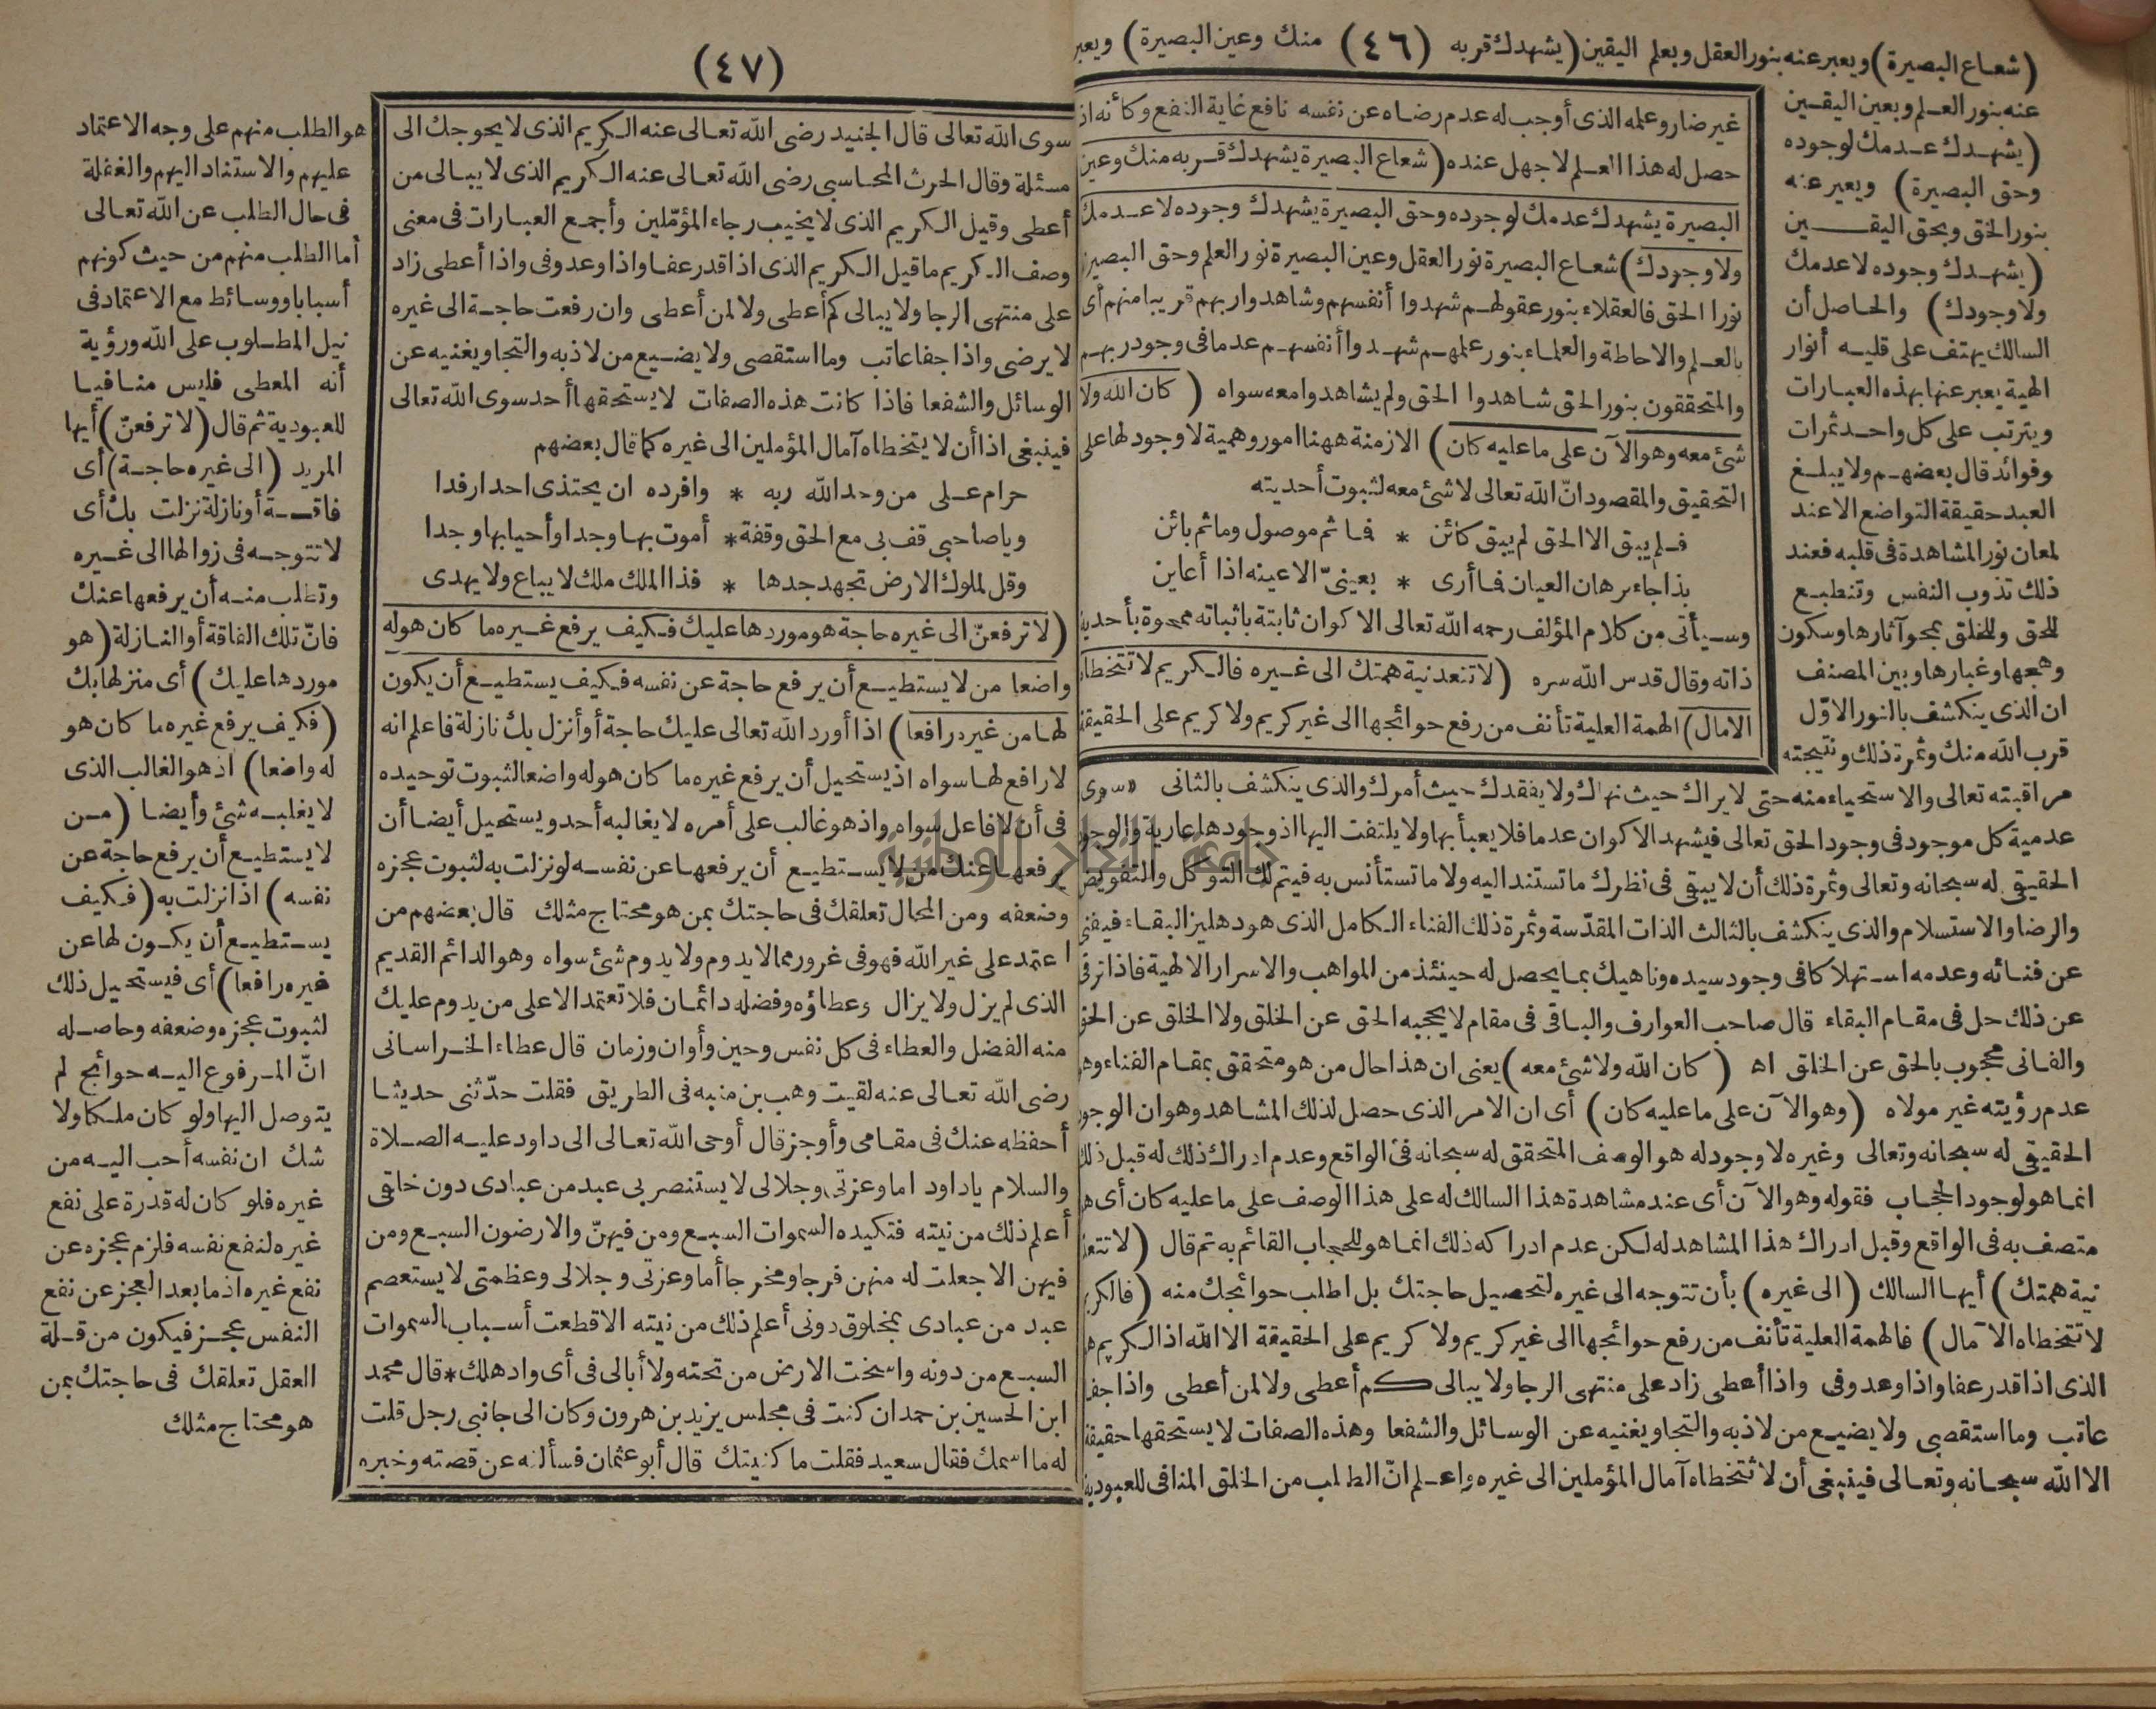 (شعاع البصيرة) ويعبر عنه بنور العقل وبعلم اليقين (يشهدك قربه (٤٦) منك وعين البصيرة) ويعبر
عنه بنور العلم وبعين اليقين
(يشهدك عدمك لوجوده
وحق البصيرة) ويعبر عنه
بنور الحق وبحق اليقين
(يشهدك وجوده لاعدمك
ولا وجودك) والحاصل أن
السالك يهتف على قلبه أنوار
الهية يعبر عنها بهذه العبارات
ويترتب على كل واحد ثمرات
وفوائد قال بعضهم ولا يبلغ
العبد حقيقة التواضع الا عند
لمعان نور المشاهدة فى قلبه فعند
ذلك تذوب النفس وتنطبع
للحق وللخلق بمحو آثارها وسكون
وهجها وغبارها وبين المصنف
ان الذى ينكشف بالنور الاوّل
قرب الله منك وثمرة ذلك ونتيجته
غير ضار وعلمه الذى أوجب له عدم رضاه عن نفسه نافع غاية النفع وكأنه اذ
حصل له هذا العلم لا جهل عنده (شعاع البصيرة يشهدك قربه منك وعين
البصيرة يشهدك عدمك لوجوده وحق البصيرة يشهدك وجوده لاعدمك
ولا وجودك) شعاع البصيرة نور العقل وعين البصيرة نور العلم وحق البصيرة
نورا الحق فالعقلاء بنور عقولهم شهدوا أنفسهم وشاهدوا ربهم قريبا منهم أى
بالعلم والاحاطة والعلماء بنور علمهم شهدوا أنفسهم عدما فى وجود ربهم
والمتحققون بنور الحق شاهدوا الحق ولم يشاهدوا معه سواه (كان الله ولا
شئ معه وهو الآن على ما عليه كان) الازمنة ههنا امور وهمية لا وجود لها على
التحقيق والمقصود انّ الله تعالى لا شئ معه لثبوت أحديته
فلم يبق الا الحق لم يبق كائن * فما ثم موصول وما ثم بائن
بذا جاء برهان العيان فما أرى * بعينىّ الا عينه اذا أعاين
وسيأتى من كلام المؤلف رحمه الله تعالى الاكوان ثابتة باثباته ممحوة بأحدية
ذاته وقال قدس الله سره (لا تتعد نية همتك الى غيره فالكريم لا تتخطاه
الامال) الهمة العلية تأنف من رفع حوائجها الى غير كريم ولا كريم على الحقيقة
مراقبته تعالى والاستحياء منه حتى لا يراك حيث نهاك ولا يفقدك حيث أمرك والذى ينكشف بالثانى سوى
عدمية كل موجود فى وجود الحق تعالى فيشهد الاكوان عدما فلا يعبأ بها ولا يلتفت اليها اذ وجودها عارية والوجود
الحقيقى له سبحانه وتعالى وثمرة ذلك أن لا يبقى فى نظرك ما تستند اليه ولا ما تستأنس به فيتم لك التوكل والتفويض
والرضا والاستسلام والذى ينكشف بالثالث الذات المقدّسة وثمرة ذلك الفناء الكامل الذى هو دهليز البقاء فيفنى
عن فنائه وعدمه استهلاكا فى وجود سيده وناهيك بما يحصل له حينئذ من المواهب والاسرار الالهية فاذا ترقى
عن ذلك حل فى مقام البقاء قال صاحب العوارف والباقى فى مقام لا يحجبه الحق عن الخلق ولا الخلق عن الحق
والفانى محجوب بالحق عن الخلق اه (كان الله ولا شئ معه) يعنى ان هذا حال من هو متحقق بمقام الفناء وهو
عدم رؤيته غير مولاه (وهو الآن على ما عليه كان) أى ان الامر الذى حصل لذلك المشاهد وهو ان الوجود
الحقيقى له سبحانه وتعالى وغيره لا وجود له هو الوصف المتحقق له سبحانه فى الواقع وعدم ادراك ذلك له قبل ذلك
انما هو لوجود الحجاب فقوله وهو الآن أى عند مشاهدة هذا السالك له على هذا الوصف على ما عليه كان أى هو
متصف به فى الواقع وقبل ادراك هذا المشاهد له لكن عدم ادراكه ذلك انما هو للحجاب القائم به ثم قال (لا تتعد
نية همتك) أيها السالك (الى غيره) بأن تتوجه الى غيره لتحصيل حاجتك بل اطلب حوائجك منه (فالكريم
لا تتخطاه الآمال) فالهمة العلية تأنف من رفع حوائجها الى غير كريم ولا كريم على الحقيقة الا الله اذ الكريم هو
الذى اذا قدر عفا واذا وعد وفى واذا أعطى زاد على منتهى الرجا ولا يبالى كم أعطى ولا لمن أعطى واذا جفا
عاتب وما استقصى ولا يضيع من لاذ به والتجا ويغنيه عن الوسائل والشفعا وهذه الصفات لا يستحقها حقيقة
الا الله سبحانه وتعالى فينبغى أن لا تتخطاه آمال المؤملين الى غيره واعلم انّ الطلب من الخلق المنافى للعبودية
(٤٧)
سوى الله تعالى قال الجنيد رضى الله تعالى عنه الكريم الذى لا يحوجك الى
مسئلة وقال الحرث المحاسبى رضى الله تعالى عنه الكريم الذى لا يبالى من
أعطى وقيل الكريم الذى لا يخيب رجاء المؤمّلين وأجمع العبارات فى معنى
وصف الكريم ما قيل الكريم الذى اذا قدر عفا واذا وعد وفى واذا أعطى زاد
على منتهى الرجا ولا يبالى كم أعطى ولا لمن أعطى وان رفعت حاجة الى غيره
لا يرضى واذا جفا عاتب وما استقصى ولا يضيع من لاذ به والتجا ويغنيه عن
الوسائل والشفعا فاذا كانت هذه الصفات لا يستحقها أحد سوى الله تعالى
فينبغى اذا أن لا يتخطاه آمال المؤملين الى غيره كما قال بعضهم
حرام على من وحد الله ربه * وافرده ان يجتذى احدا رفدا
ويا صاحبى قف بى مع الحق وقفة * أموت بها وجدا وأحيا بها وجدا
وقل لملوك الارض تجهد جدها * فذا الملك ملك لا يباع ولا يهدى
(لا ترفعنّ الى غيره حاجة هو موردها عليك فكيف يرفع غيره ما كان هو له
واضعا من لا يستطيع أن يرفع حاجة عن نفسه فكيف يستطيع أن يكون
لها من غيره رافعا) اذا أورد الله تعالى عليك حاجة أو أنزل بك نازلة فاعلم انه
لا رافع لها سواه اذ يستحيل أن يرفع غيره ما كان هو له واضعا لثبوت توحيده
فى أن لا فاعل سواه واذ هو غالب على أمره لا يغالبه أحد ويستحيل أيضا أن
يرفعها عنك من لا يستطيع أن يرفعها عن نفسه لو نزلت به لثبوت عجزه
وضعفه ومن المحال تعلقك فى حاجتك بمن هو محتاج مثلك قال بعضهم من
اعتمد على غير الله فهو فى غرور مما لا يدوم ولا يدوم شئ سواه وهو الدائم القديم
الذى لم يزل ولا يزال وعطاؤه وفضله دائمان فلا تعتمد الا على من يدوم عليك
منه الفضل والعطاء فى كل نفس وحين وأوان وزمان قال عطاء الخراسانى
رضى الله تعالى عنه لقيت وهب بن منبه فى الطريق فقلت حدّثنى حديثا
أحفظه عنك فى مقامى وأوجز قال أوحى الله تعالى الى داود عليه الصلاة
والسلام يا داود اما وعزتى وجلالى لا يستنصر بى عبد من عبادى دون خلقى
أعلم ذلك من نيته فتكيده السموات السبع ومن فيهنّ والارضون السبع ومن
فيهن الا جعلت له منهن فرجا ومخرجا أما وعزتى وجلالى وعظمتى لا يستعصم
عبد من عبادى بمخلوق دونى أعلم ذلك من نيته الا قطعت أسباب السموات
السبع من دونه واسخت الارض من تحته ولا أبالى فى أى واد هلك * قال محمد
ابن الحسين بن حمدان كنت فى مجلس يزيد بن هرون وكان الى جانبى رجل قلت
له ما اسمك فقال سعيد فقلت ما كنيتك قال أبو عثمان فسألته عن قصته وخبره
هو الطلب منهم على وجه الاعتماد
عليهم والاستناد اليهم والغفلة
فى حال الطلب عن الله تعالى
أما الطلب منهم من حيث كونهم
أسبابا ووسائط مع الاعتماد فى
نيل المطلوب على الله ورؤية
أنه المعطى فليس منافيا
للعبودية ثم قال (لا ترفعنّ) أيها
المريد (الى غيره حاجة) أى
فاقة أو نازلة نزلت بك أى
لا تتوجه فى زوالها الى غيره
وتطلب منه أن يرفعها عنك
فانّ تلك الفاقة أو النازلة (هو
موردها عليك) أى منزلها بك
(فكيف يرفع غيره ما كان هو
له واضعا) اذ هو الغالب الذى
لا يغلبه شئ وأيضا (من
لا يستطيع أن يرفع حاجة عن
نفسه) اذا نزلت به (فكيف
يستطيع أن يكون لها عن
غيره رافعا) أى فيستحيل ذلك
لثبوت عجزه وضعفه وحاصله
انّ المرفوع اليه حوائج لم
يتوصل اليها ولو كان ملكا ولا
شك ان نفسه أحب اليه من
غيره فلو كان له قدرة على نفع
غيره لنفع نفسه فلزم عجزه عن
نفع غيره اذ ما بعد العجز عن نفع
النفس عجز فيكون من قلة
العقل تعلقك فى حاجتك بمن
هو محتاج مثلك
جامعة النجاح الوطنية